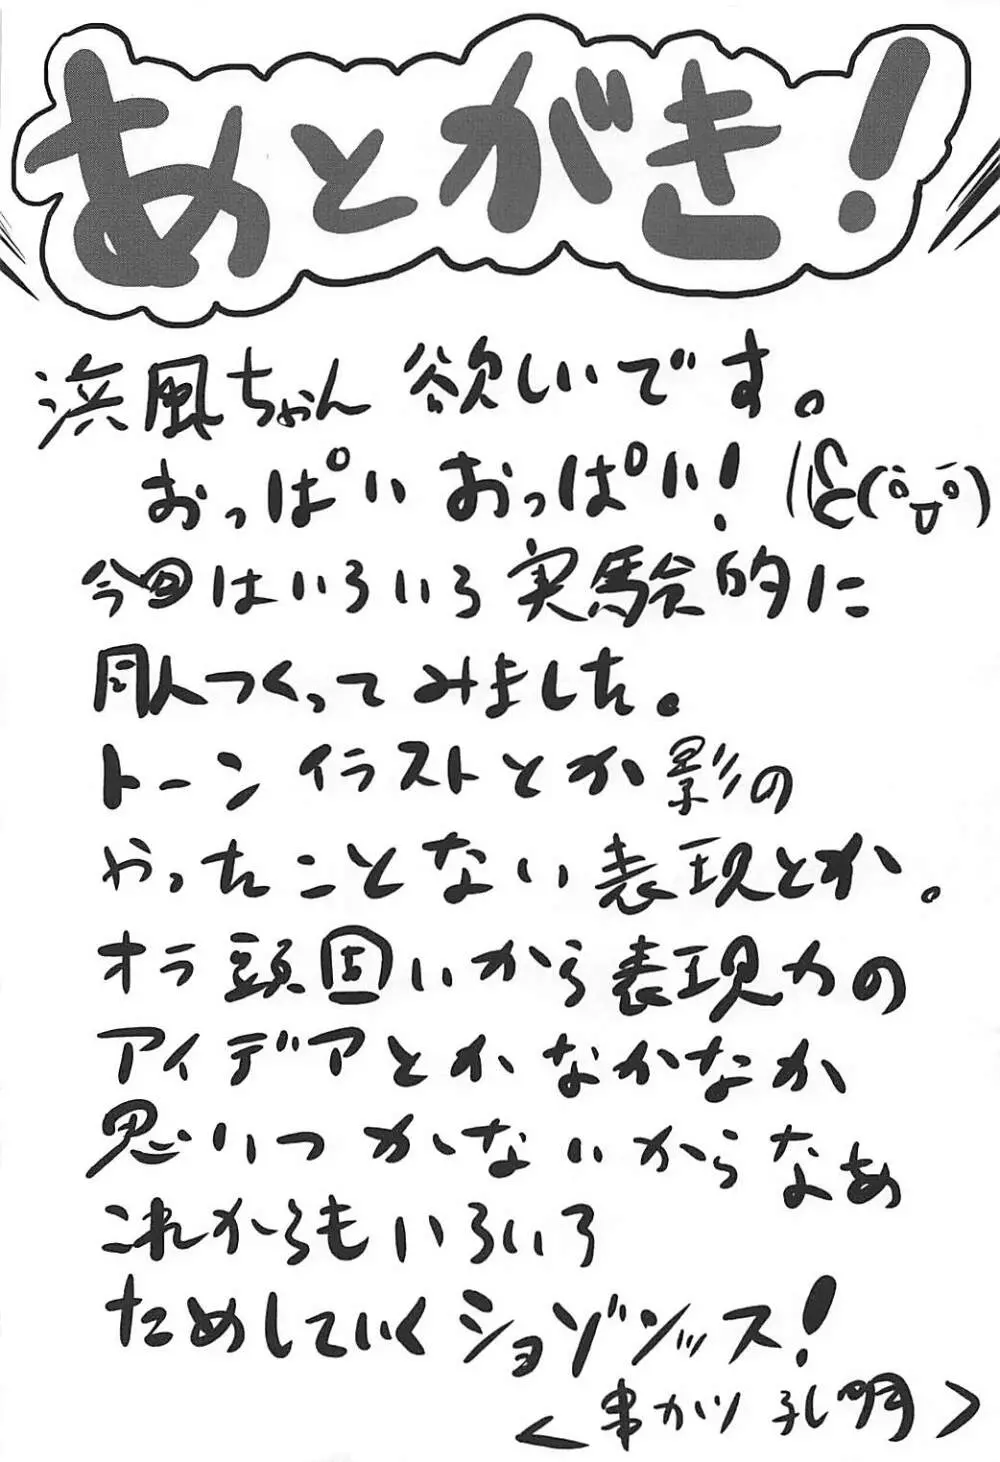 あとがき!
浜風ちゃん 欲しいです。
おっぱい おっぱい!
今回はいろいろ実験的に
同人つくってみました。
トーンイラストとか影の
やったことない表現とか。
オラ頭固いから表現力の
アイデアとかなかなか
思いつかないからなあ
これからもいろいろ
ためしていくショゾンッス!
<串カツ孔明>